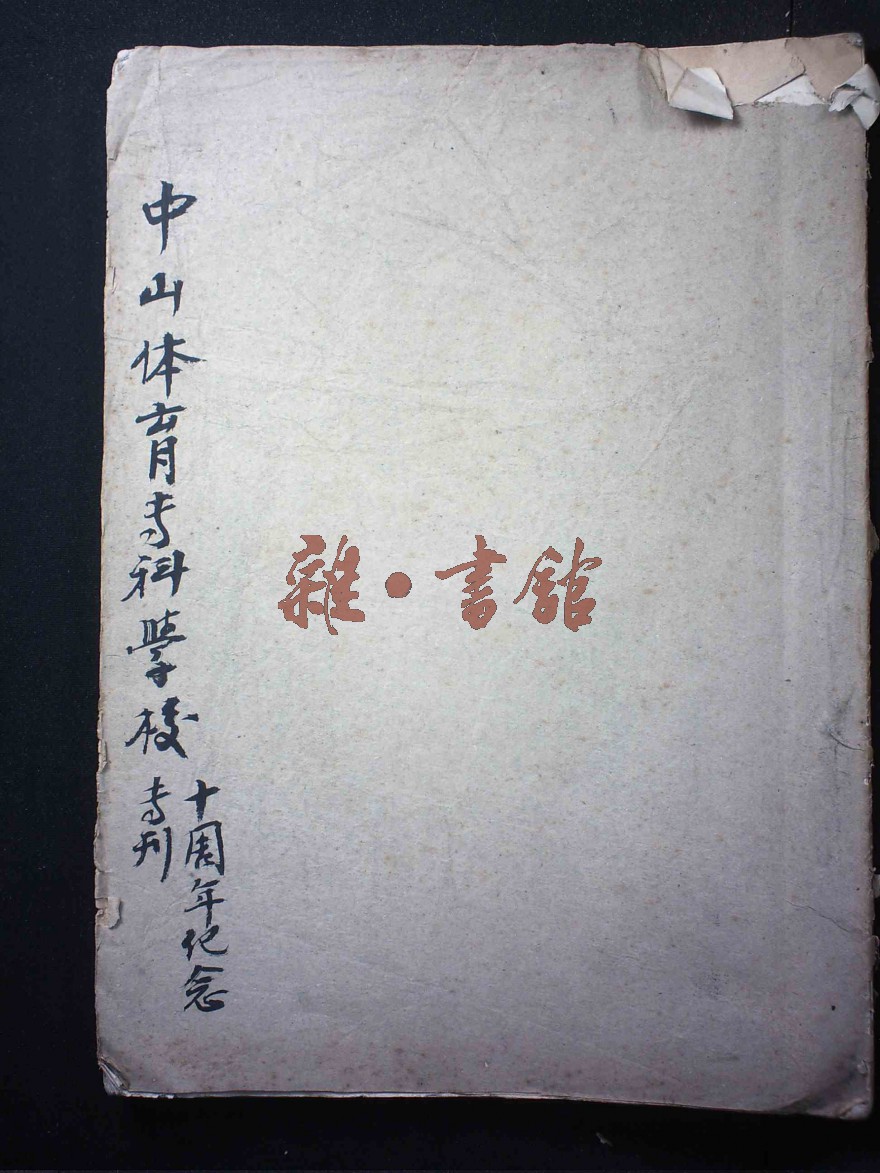 中山体育专科學校
十周年纪念
专刊
雜·書館